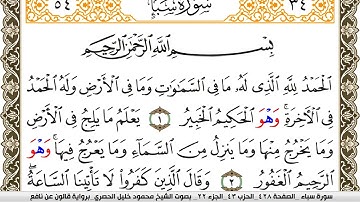 ٥٤ سُورَةُ سَبَإٍ ٣٤
بِسْمِ اللَّهِ الرَّحْمَٰنِ الرَّحِيمِ
الْحَمْدُ لِلَّهِ الَّذِي لَهُ مَا فِي السَّمَاوَاتِ وَمَا فِي الْأَرْضِ وَلَهُ الْحَمْدُ
فِي الْآخِرَةِ وَهْوَ الْحَكِيمُ الْخَبِيرُ ١ يَعْلَمُ مَا يَلِجُ فِي الْأَرْضِ
وَمَا يَخْرُجُ مِنْهَا وَمَا يَنزِلُ مِنَ السَّمَاءِ وَمَا يَعْرُجُ فِيهَا وَهْوَ
الرَّحِيمُ الْغَفُورُ ٢ وَقَالَ الَّذِينَ كَفَرُوا لَا تَأْتِينَا السَّاعَةُ
سورة سباء . الصفحة ٤٢٨ الحزب ٤٣ الجزء ٢٢ . بصوت الشيخ محمود خليل الحصري برواية قالون عن نافع